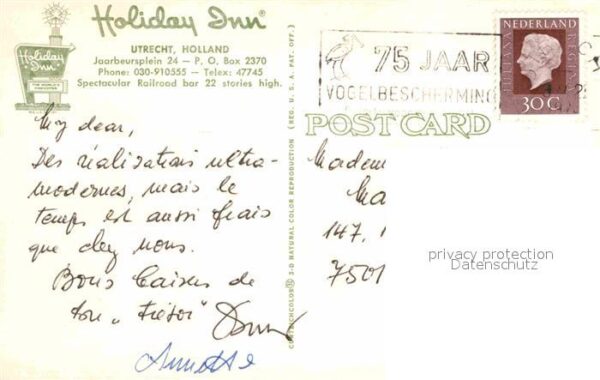 Holiday Inn®
UTRECHT, HOLLAND
Jaarbeursplein 24 – P. O. Box 2370
Phone: 030-910555 – Telex: 47745
Spectacular Railroad bar 22 stories high.
Holiday Inn
My dear,
Des réalisations ultra-
modernes, mais le
temps est aussi frais
que chez nous.
Bons baisers de
ton „Trésor"
Annette
CURTEICHCOLOR® 3-D NATURAL COLOR REPRODUCTION (REG. U. S. A. PAT. OFF.)
75 JAAR
VOGELBESCHERMING
NEDERLAND
JULIANA REGINA
30 C
POST CARD
Madam
Ma
147,
7501
privacy protection
Datenschutz